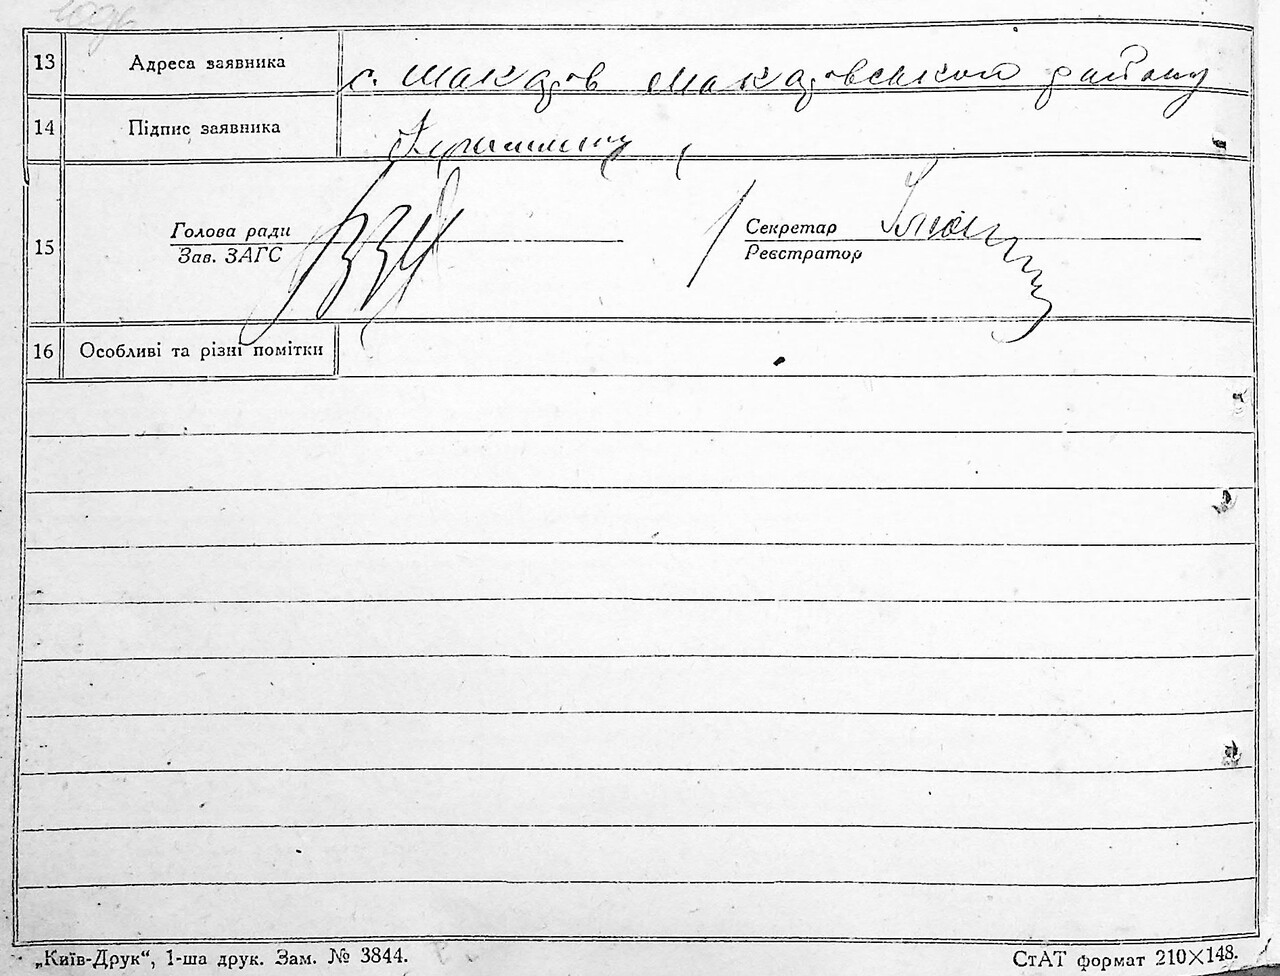 13 Адреса заявника с. Макаров Макаровський району
14 Підпис заявника
Голова ради Секретар
15
Зав. ЗАГС Реєстратор
16 Особливі та різні помітки
„Київ-Друк“, 1-ша друк. Зам. № 3844. СтАТ формат 210×148.